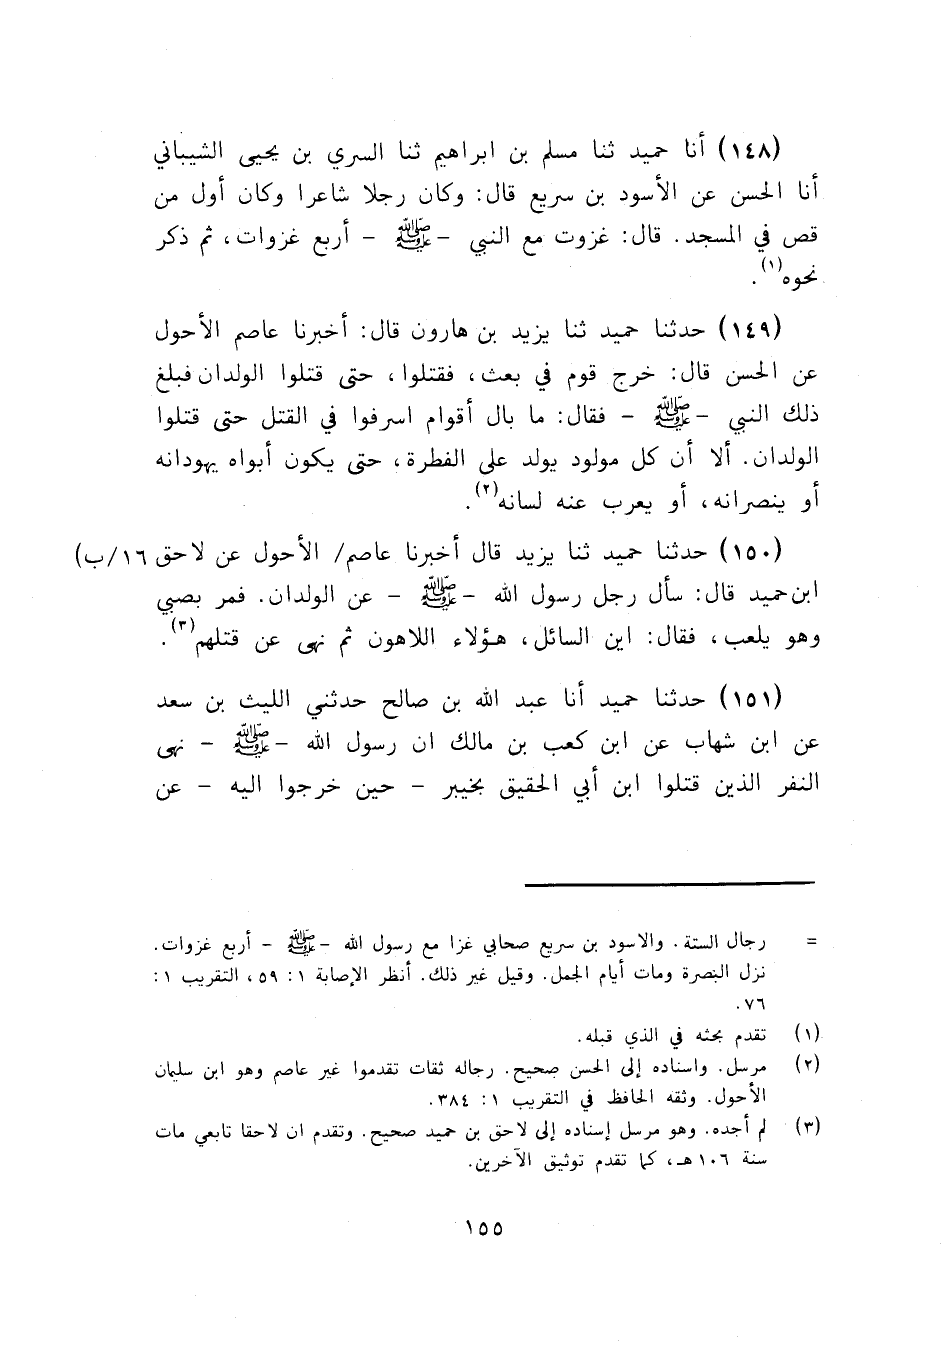 (١٤٨) أنا حميد ثنا مسلم بن ابراهيم ثنا السري بن يحيى الشيباني
أنا الحسن عن الأسود بن سريع قال: وكان رجلا شاعرا وكان أول من
قص في المسجد. قال: غزوت مع النبي -ﷺ- أربع غزوات، ثم ذكر
نحوه(١).
(١٤٩) حدثنا حميد ثنا يزيد بن هارون قال: أخبرنا عاصم الأحول
عن الحسن قال: خرج قوم في بعث، فقتلوا، حتى قتلوا الولدان فبلغ
ذلك النبي -ﷺ- فقال: ما بال أقوام اسرفوا في القتل حتى قتلوا
الولدان. ألا أن كل مولود يولد على الفطرة، حتى يكون أبواه يهودانه
أو ينصرانه، أو يعرب عنه لسانه(٢).
(١٥٠) حدثنا حميد ثنا يزيد قال أخبرنا عاصم/ الأحول عن لاحق ١٦/ب)
ابن حميد قال: سأل رجل رسول الله -ﷺ- عن الولدان. فمر بصبي
وهو يلعب، فقال: اين السائل، هؤلاء اللاهون ثم نهى عن قتلهم(٣).
(١٥١) حدثنا حميد أنا عبد الله بن صالح حدثني الليث بن سعد
عن ابن شهاب عن ابن كعب بن مالك ان رسول الله -ﷺ- نهى
النفر الذين قتلوا ابن أبي الحقيق بخيبر - حين خرجوا اليه - عن
= رجال الستة. والاسود بن سريع صحابي غزا مع رسول الله -ﷺ- أربع غزوات.
نزل البصرة ومات أيام الجمل. وقيل غير ذلك. أنظر الإصابة ١: ٥٩، التقريب ١:
٧٦.
(١) تقدم بحثه في الذي قبله.
(٢) مرسل. واسناده إلى الحسن صحيح. رجاله ثقات تقدموا غير عاصم وهو ابن سليمان
الأحول. وثقه الحافظ في التقريب ١: ٣٨٤.
(٣) لم أجده. وهو مرسل إسناده إلى لاحق بن حميد صحيح. وتقدم ان لاحقا تابعي مات
سنة ١٠٦هـ، كما تقدم توثيق الآخرين.
١٥٥